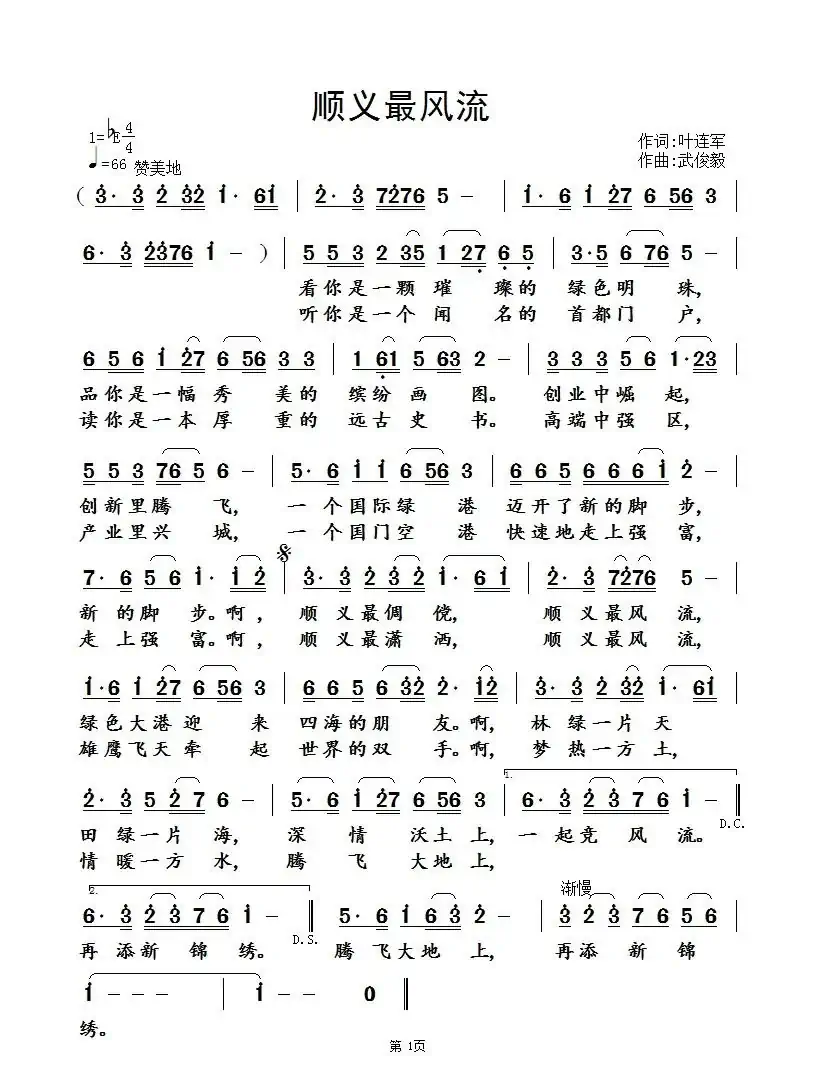 顺义最风流
1=♭E 4/4
作词:叶连军
♩=66 赞美地
作曲:武俊毅
( 3· 3 2 32 1· 61 | 2· 3 7276 5 - | 1· 6 1 27 6 56 3 |
6· 3 2376 1 - ) | 5 5 3 2 35 1 27 6 5 | 3·5 6 76 5 - |
看你是一颗 璀 璨的 绿色明 珠,
听你是一个 闻 名的 首都门 户,
6 5 6 1 27 6 56 3 3 | 1 61 5 63 2 - | 3 3 3 5 6 1·23 |
品你是一幅 秀 美的 缤纷画 图。 创业中崛 起,
读你是一本 厚 重的 远古史 书。 高端中强 区,
5 5 3 76 5 6 - | 5· 6 1 1 6 56 3 | 6 6 5 6 6 6 1 2 - |
创新里腾 飞, 一 个国际绿 港 迈开了新的脚 步,
产业里兴 城, 一 个国门空 港 快速地走上强 富,
7· 6 5 6 1· 1 2 | 3· 3 2 3 2 1· 6 1 | 2· 3 7276 5 - |
新 的脚 步。啊, 顺 义最倜 傥, 顺 义最风 流,
走 上强 富。啊, 顺 义最潇 洒, 顺 义最风 流,
1·6 1 27 6 56 3 | 6 6 5 6 32 2· 12 | 3· 3 2 32 1· 61 |
绿色大港迎 来 四海的朋 友。啊, 林 绿一片 天
雄鹰飞天牵 起 世界的双 手。啊, 梦 热一方 土,
2· 3 5 2 7 6 - | 5· 6 1 27 6 56 3 | 1. 6· 3 2 3 7 6 1 - ‖
D.C.
田 绿一片 海, 深 情 沃土上, 一 起竞 风 流。
情 暖一方 水, 腾 飞 大地上,
渐慢
2. 6· 3 2 3 7 6 1 - ‖ 5· 6 1 6 3 2 - | 3 2 3 7 6 5 6 |
D.S.
再 添新 锦 绣。 腾 飞大地 上, 再添 新 锦
1 - - - | 1 - - 0 ‖
绣。
第 1页